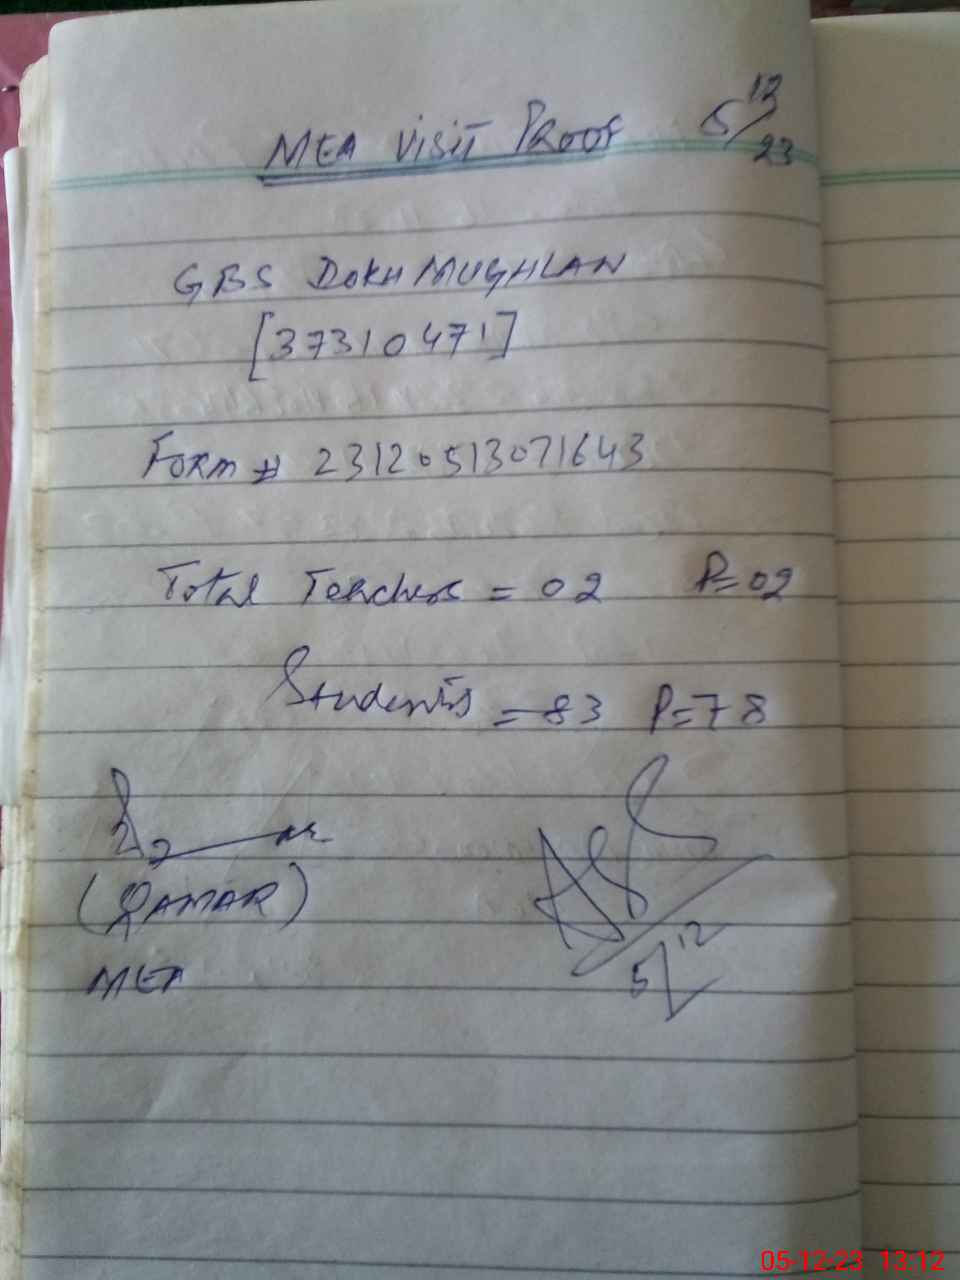 MEA VISIT PROOF 5/12/23
GBS DOKH MUGHLAN
[37310471]
Form # 23120513071643
Total Teachers = 02 P=02
Students = 83 P=78
(QAMAR)
MEA
5/12
05-12-23 13:12